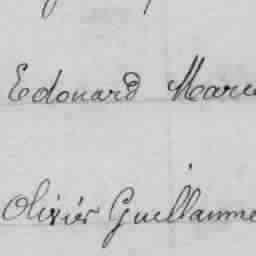 Edouard Marc
Olivier Guillaume